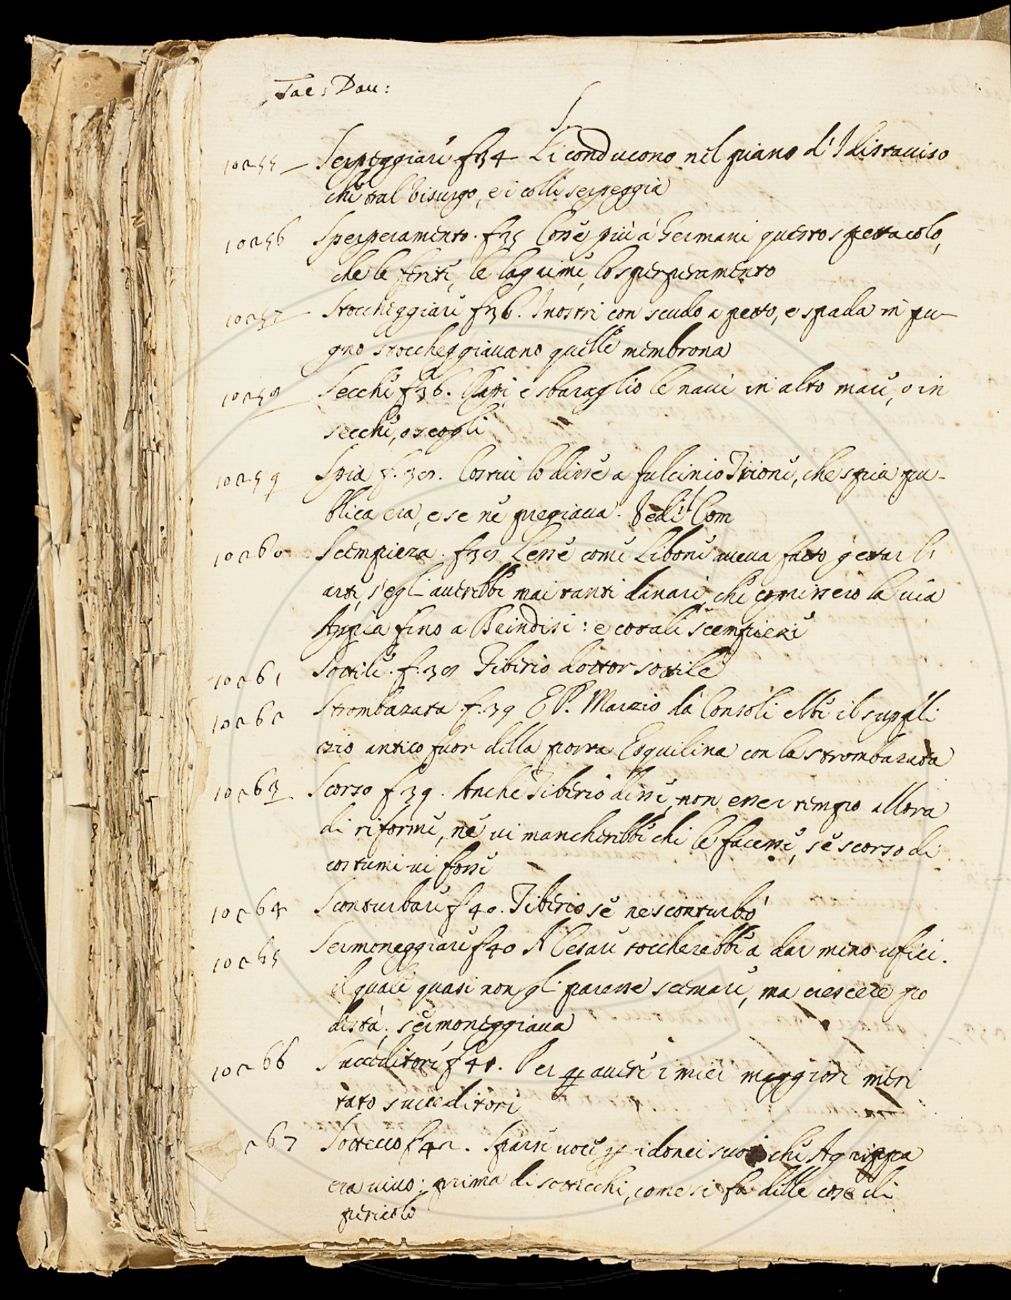 Tac: Dau:
S.
10255 Serpeggiare f 34 Li conducono nel piano d'Idistauiso
che tral Visurgo, e i colli serpeggia
10256 Sperperamento. f 35 Cosse più a Germani questo spettacolo,
che le ferite, le lagrime, lo sperperamento
10257 Stoccheggiare f 36. I nostri con scudo a petto, e spada in pu-
gno stoccheggiauano quelle membrona
10258 Secche f 36. e sbaraglio le naui in alto mare, o in
secche, o scogli
10259 Spia f. 38. Costui lo disse a Fulcinio Trione, che spia pu-
blica era, e se ne pregiaua. Vedi Com
10260 Scempiezza. f 38 Lesse come Libone aueua fatto gettar l'
arti, s'egli auerebbe mai tanti danari che coprissero la uia
Appia fino a Brindisi: e cotali scempiezze
10261 Sottile. f. 38 Tiberio dottor sottile
10262 Strombazata f. 39 E P. Marzio da Consoli ebbe il suppli
zio antico fuor della porta Esquilina con la strombazata
10263 Scorso f 39. Anche Tiberio disse, non esser tempo allora
di riforme, ne ui mancherebbe chi le facesse, se scorso di
costumi ui fosse
10264 Sconturbare f 40. Tiberio se ne sconturbò
10265 Sermoneggiare f 40 A Cesare toccherebbe a dar meno ufici.
il quale quasi non gli paresse scemare, ma crescere po
destà. sermoneggiaua
10266 Succeditore f 41. Per auere i miei maggiori meri
tato succeditori
267 Sottecco f 42. Sparse uoce per idonei suoi che Agrippa
era uiuo: prima di sottecchi, come si fa delle cose di
pericolo